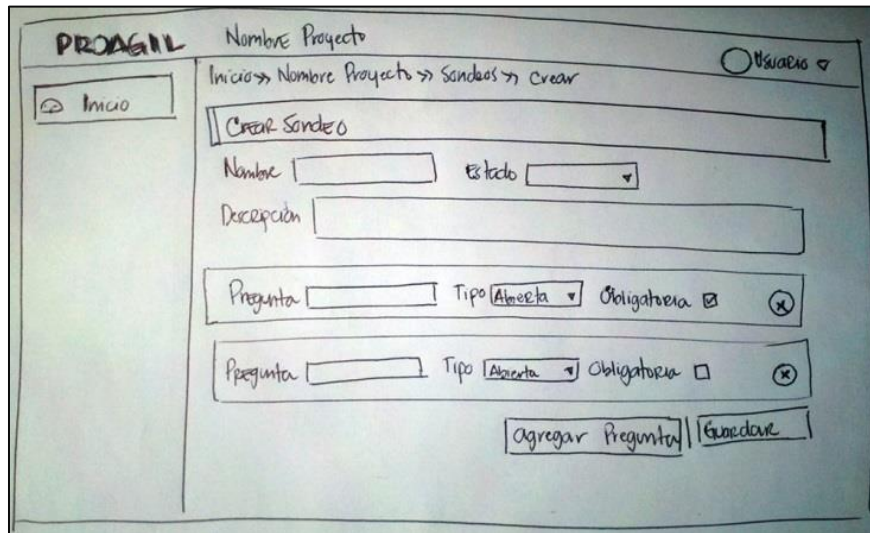 PROAGIL Nombre Proyecto
Usuario
Inicio >> Nombre Proyecto >> Sondeos >> Crear
Inicio
Crear Sondeo
Nombre Estado
Descripción
Pregunta Tipo Abierta Obligatoria
Pregunta Tipo Abierta Obligatoria
Agregar Pregunta Guardar